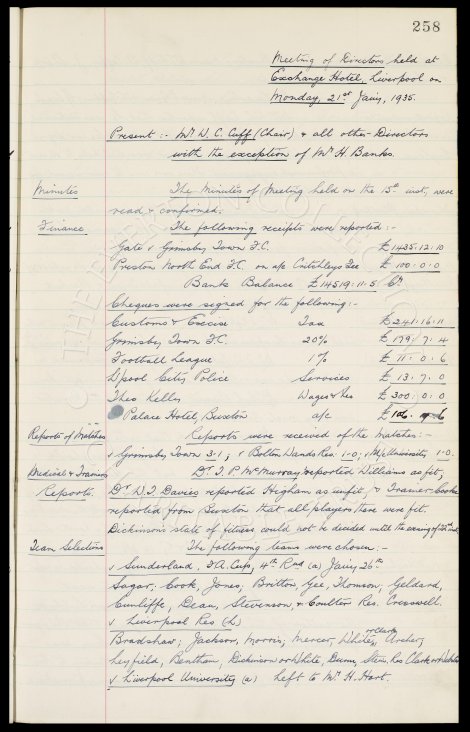 258
Meeting of Directors held at
Exchange Hotel, Liverpool on
Monday, 21st Jany, 1935.
Present :- Mr W. C. Cuff (Chair) & all other Directors
with the exception of Mr H. Banks.
Minutes The Minutes of Meeting held on the 15th inst, were
read & confirmed.
Finance The following receipts were reported :-
Gate v Grimsby Town F.C. £ 1435.12.10
Preston North End F.C. on a/c Critchleys Fee £ 100.0.0
Bank Balance £14519.11.5 Cr
Cheques were signed for the following :-
Customs & Excise Tax £ 241.16.11
Grimsby Town F.C. 20% £ 179.7.4
Football League 1% £ 11.0.6
L'pool City Police Services £ 13.7.0
Theo Kelly Wages & Fees £ 300.0.0
Palace Hotel, Buxton a/c £
Reports of Matches Reports were received of the Matches :-
v Grimsby Town 3.1; v Bolton Wands Res. 1.0; v University 1.0.
Medical & Trainers Dr. T. P. McMurray reported Williams as fit,
Reports. Dr. W. J. Davies reported Higham as unfit, & Trainer Cooke
reported from Buxton that all players there were fit.
Dickinson's state of fitness could not be decided until the evening of the inst.
Team Selections The following teams were chosen :-
v Sunderland, F.A. Cup, 4th Rnd (a) Jany 26th
Sagar; Cook, Jones; Britton, Gee, Thomson; Geldard,
Cunliffe, Dean, Stevenson, & Coulter Res. Cresswell.
v Liverpool Res (h)
Bradshaw; Jackson, Morris; Mercer, White or Clark, Archer;
Leyfield, Bentham, Dickinson or White, Dunn, Stein, Res Clark or White
v Liverpool University (a) Left to Mr H. Hart.